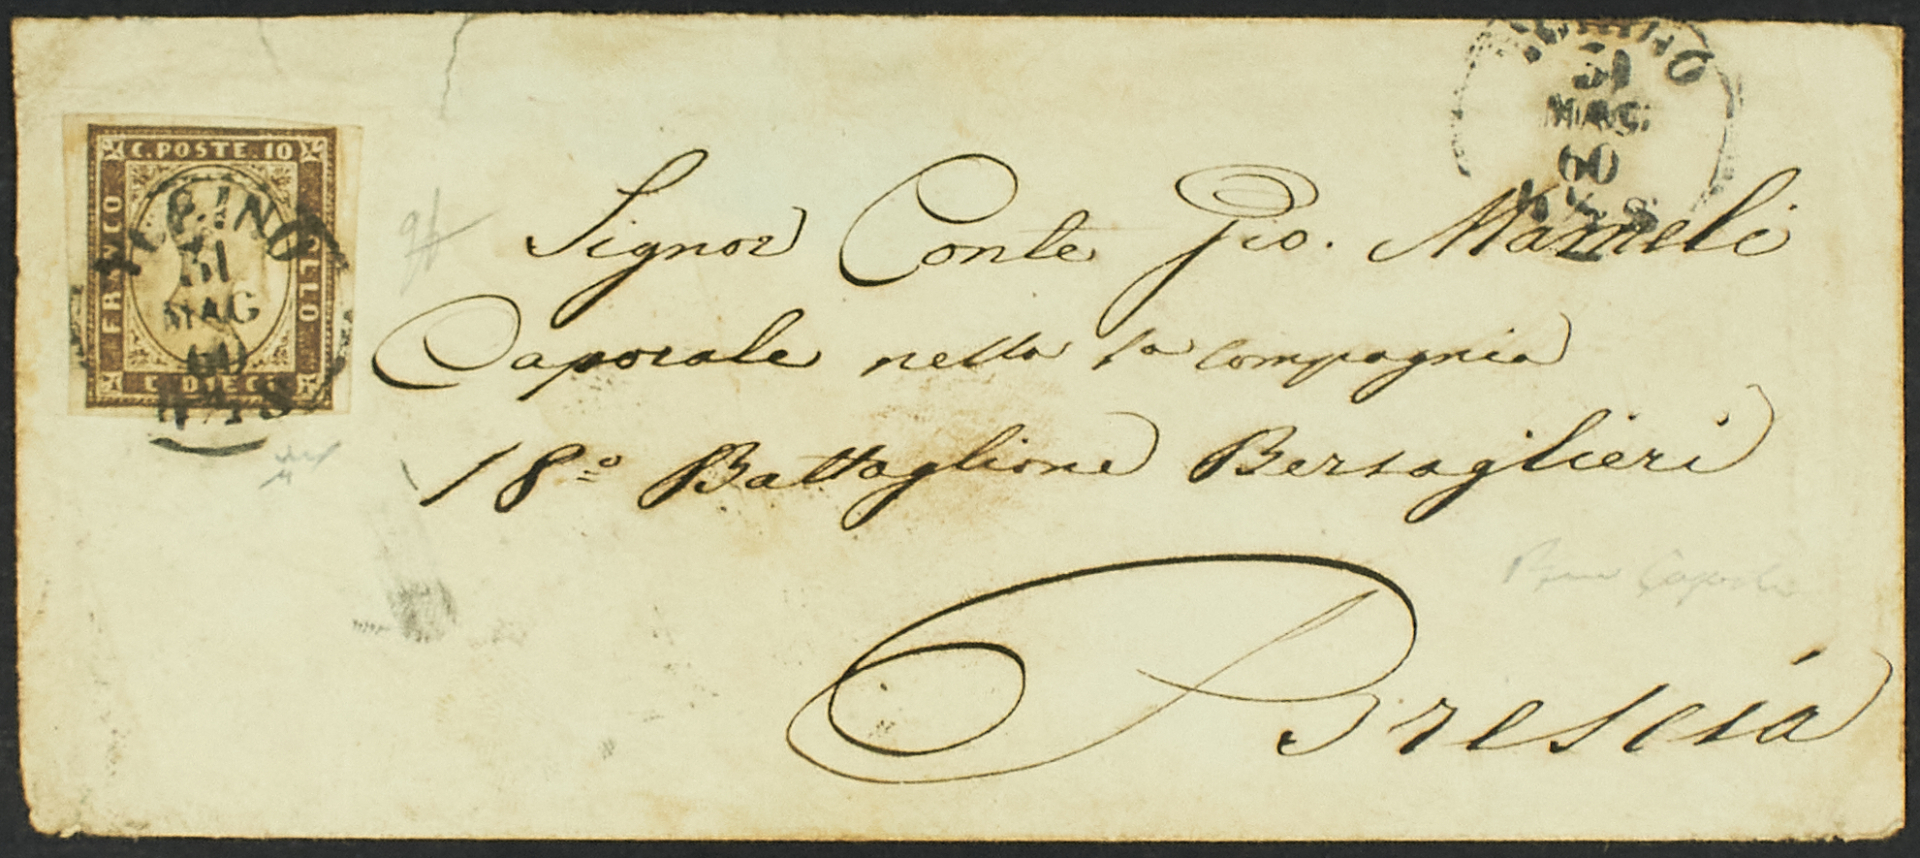 C. POSTE. 10
FRANCO
BOLLO
C. DIECI
TORINO
31
MAG
60
TORINO
31
MAG
60
Signor Conte Gio. Mameli
Caporale nella 1a Compagnia
18º Battaglione Bersaglieri
Brescia